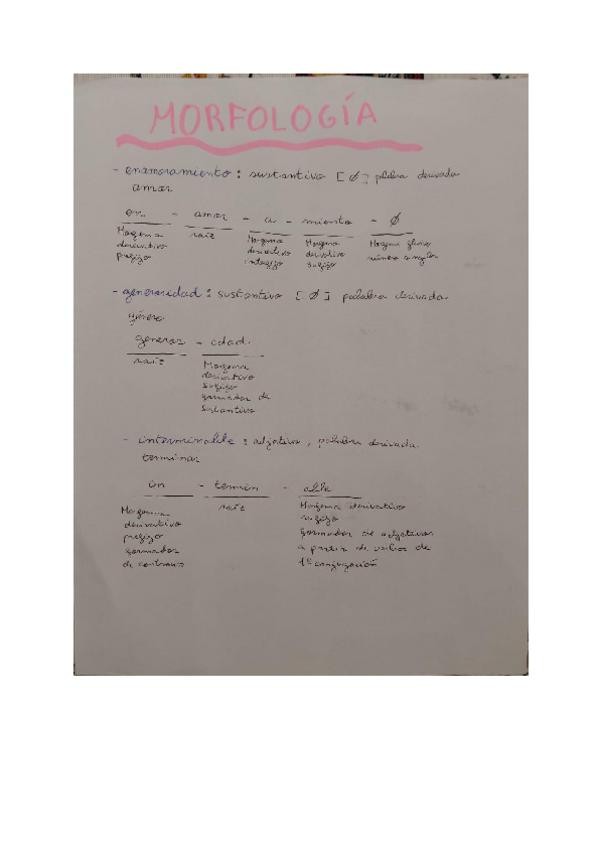 MORFOLOGÍA
- enamoramiento : sustantivo [ Ø ] palabra derivada
amar
en - amor - a - miento - Ø
Morfema raíz Morfema Morfema Morfema
derivativo derivativo derivativo número singular
prefijo interfijo sufijo
- generosidad : sustantivo [ Ø ] palabra derivada
género
- idad
raíz Morfema
derivativo
sufijo
formador de
sustantivo
- interminable : adjetivo , palabra derivada
terminar
in - termin - able
Morfema raíz Morfema derivativo
derivativo sufijo
prefijo formador de adjetivos
formador a partir de verbos de
de contrario 1ª conjugación